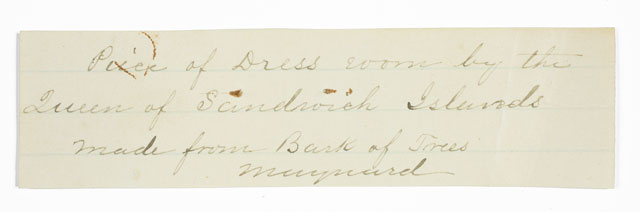 Piece of Dress worn by the
Queen of Sandwich Islands
made from Bark of Trees
Maynard